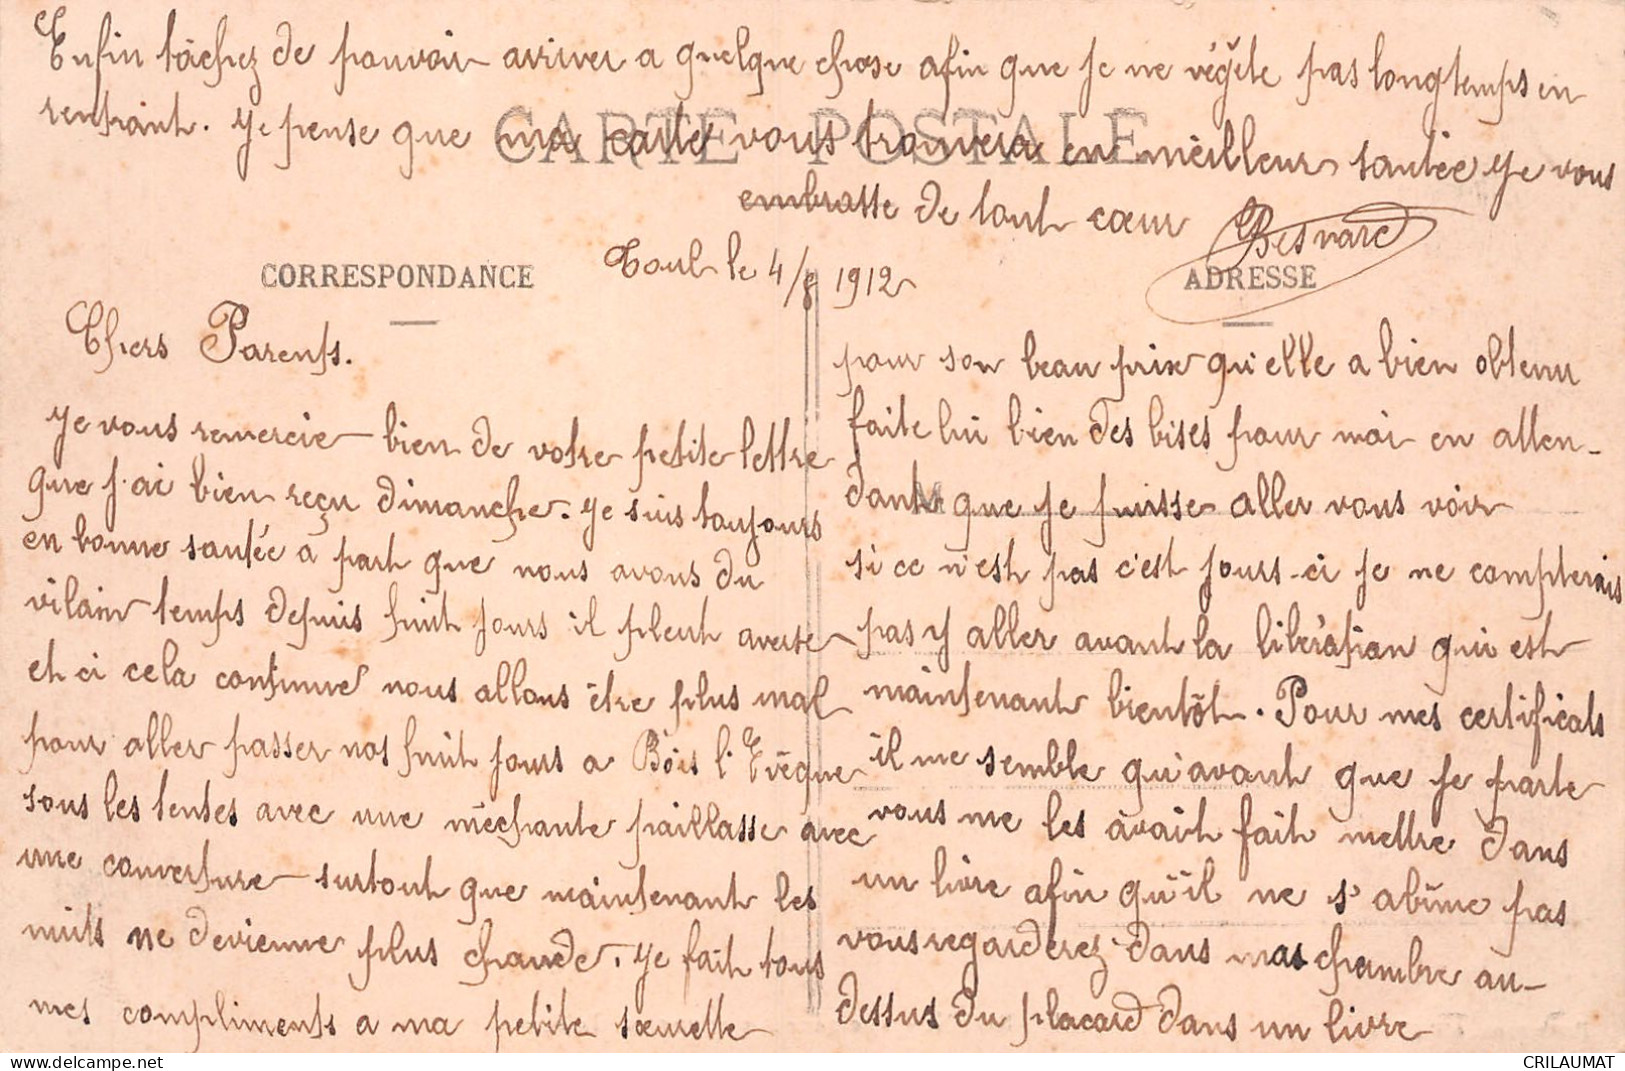 Enfin tâchez de pouvoir ariver a quelque chose afin que je ne végète pas longtemps en
rentrant. Je pense que ma carte vous trouvera en meilleur santée Je vous
embrasse de tout cœur Besnard
CARTE POSTALE
Toul le 4/8 1912
CORRESPONDANCE
ADRESSE
Chers Parents.
Je vous remercie bien de votre petite lettre
que j'ai bien reçu dimanche. Je suis toujours
en bonne santée a part que nous avons du
vilain temps depuis huit jours il pleut averse
et si cela continue nous allons être plus mal
pour aller passer nos huit jours a Bois l'Evêque
sous les tentes avec une méchante paillasse avec
une couverture surtout que maintenant les
nuits ne devienne plus chaude. Je fait tous
mes compliments a ma petite sœurette
pour son beau prix qu'elle a bien obtenu
faite lui bien des bises pour moi en atten-
dant que je puisse aller vous voir
si ce n'est pas c'est jours-ci je ne compterais
pas y aller avant la libération qui est
maintenant bientôt. Pour mes certificats
il me semble qu'avant que je parte
vous me les avait fait mettre dans
un livre afin qu'il ne s'abîme pas
vous regarderez dans mas chambre au-
dessus du placard dans un livre
www.delcampe.net
CRILAUMAT